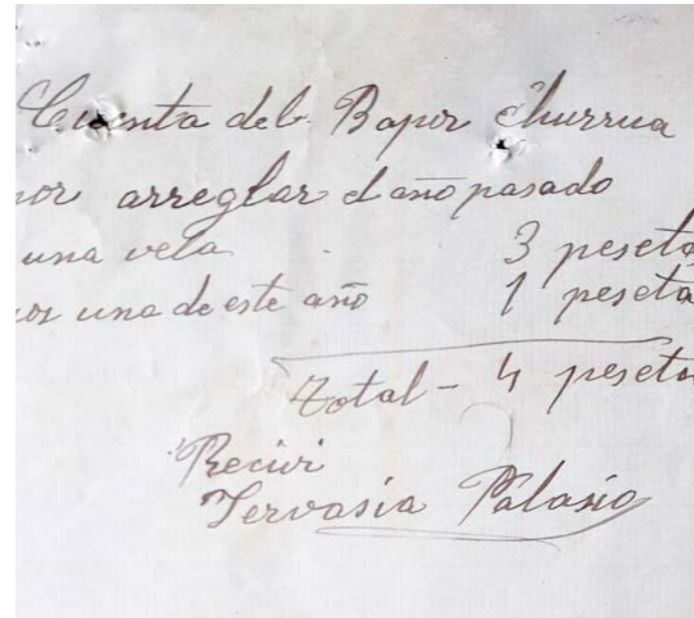 Cuenta del Bapor Churrua
por arreglar el año pasado
una vela 3 peseta
por una de este año 1 peseta
Total - 4 peseta
Recivi
Jervasia Palasio